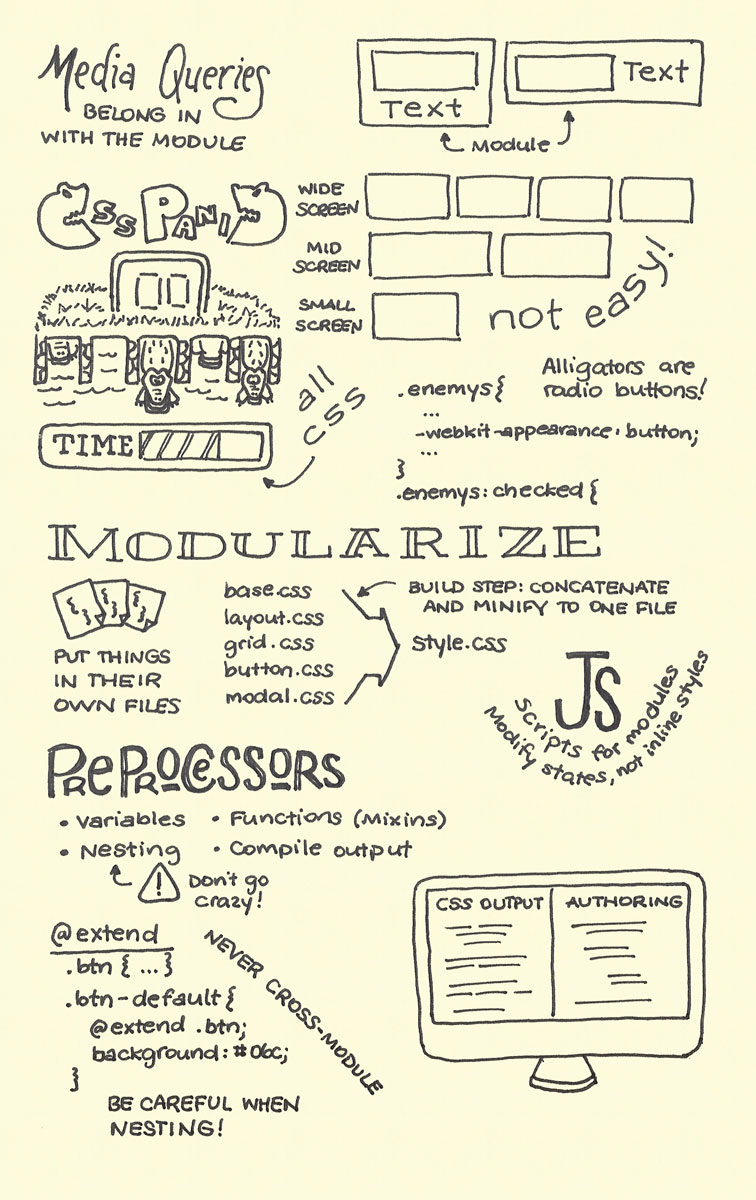 Media Queries
BELONG IN
WITH THE MODULE
Text
Text
Module
CSS PANIC
WIDE
SCREEN
MID
SCREEN
SMALL
SCREEN
not easy!
TIME
all
css
Alligators are
radio buttons!
.enemys{
...
-webkit-appearance: button;
...
}
.enemys:checked {
MODULARIZE
{} {} {}
PUT THINGS
IN THEIR
OWN FILES
base.css
layout.css
grid.css
button.css
modal.css
BUILD STEP: CONCATENATE
AND MINIFY TO ONE FILE
style.css
JS
Scripts for modules
Modify states, not inline styles
PREPROCESSORS
• Variables • Functions (Mixins)
• Nesting • Compile output
! Don't go
crazy!
@extend
.btn { ... }
.btn-default {
@extend .btn;
background: #06c;
}
NEVER CROSS-MODULE
BE CAREFUL WHEN
NESTING!
CSS OUTPUT AUTHORING